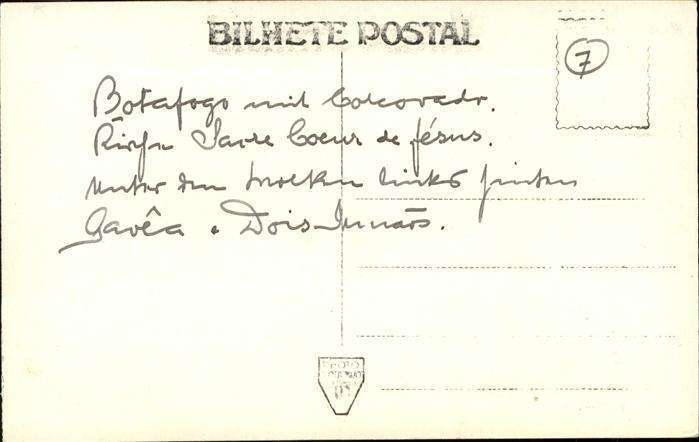 BILHETE POSTAL
7
Botafogo mit Corcovado.
Kirche Sacre Coeur de Jésus.
unter den Wolken links hinten
Gavêa + Dois Irmãos.